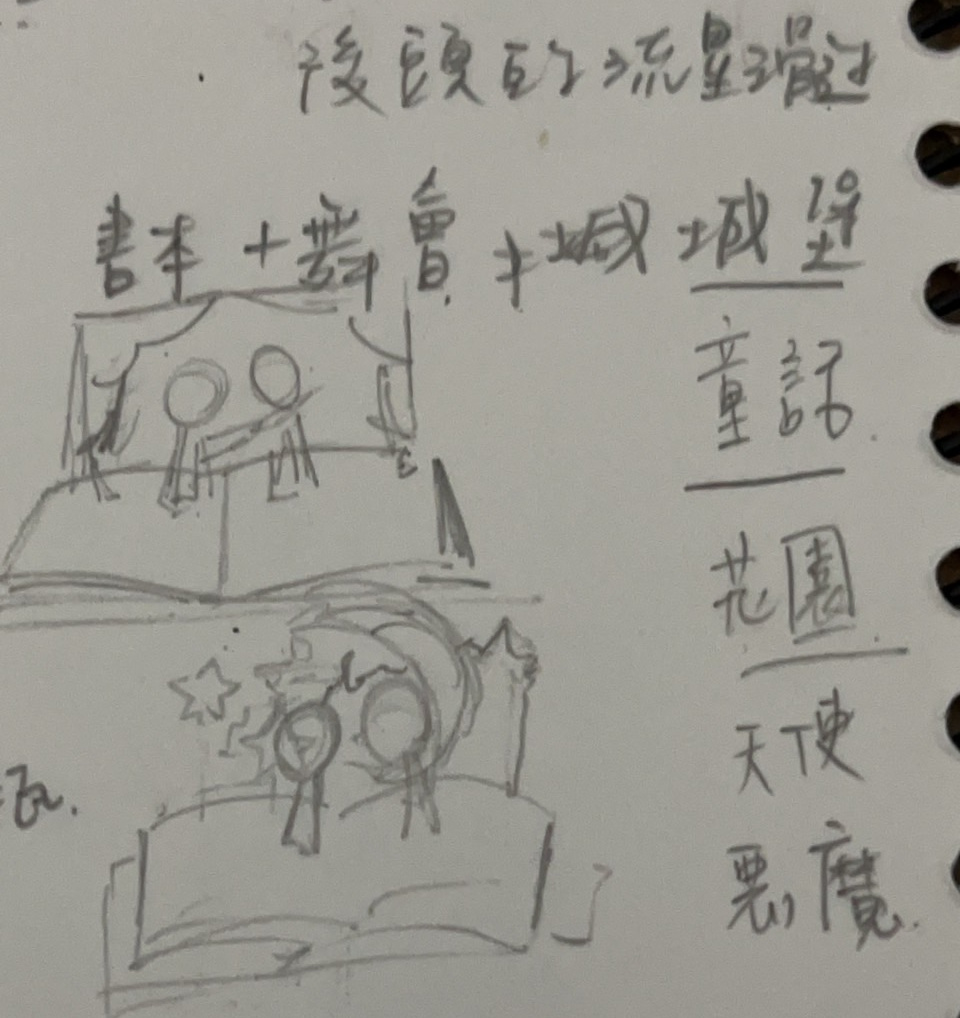 後頭的流星滑過
書本+舞會+城城堡
童話
花園
天使
惡魔
瓶